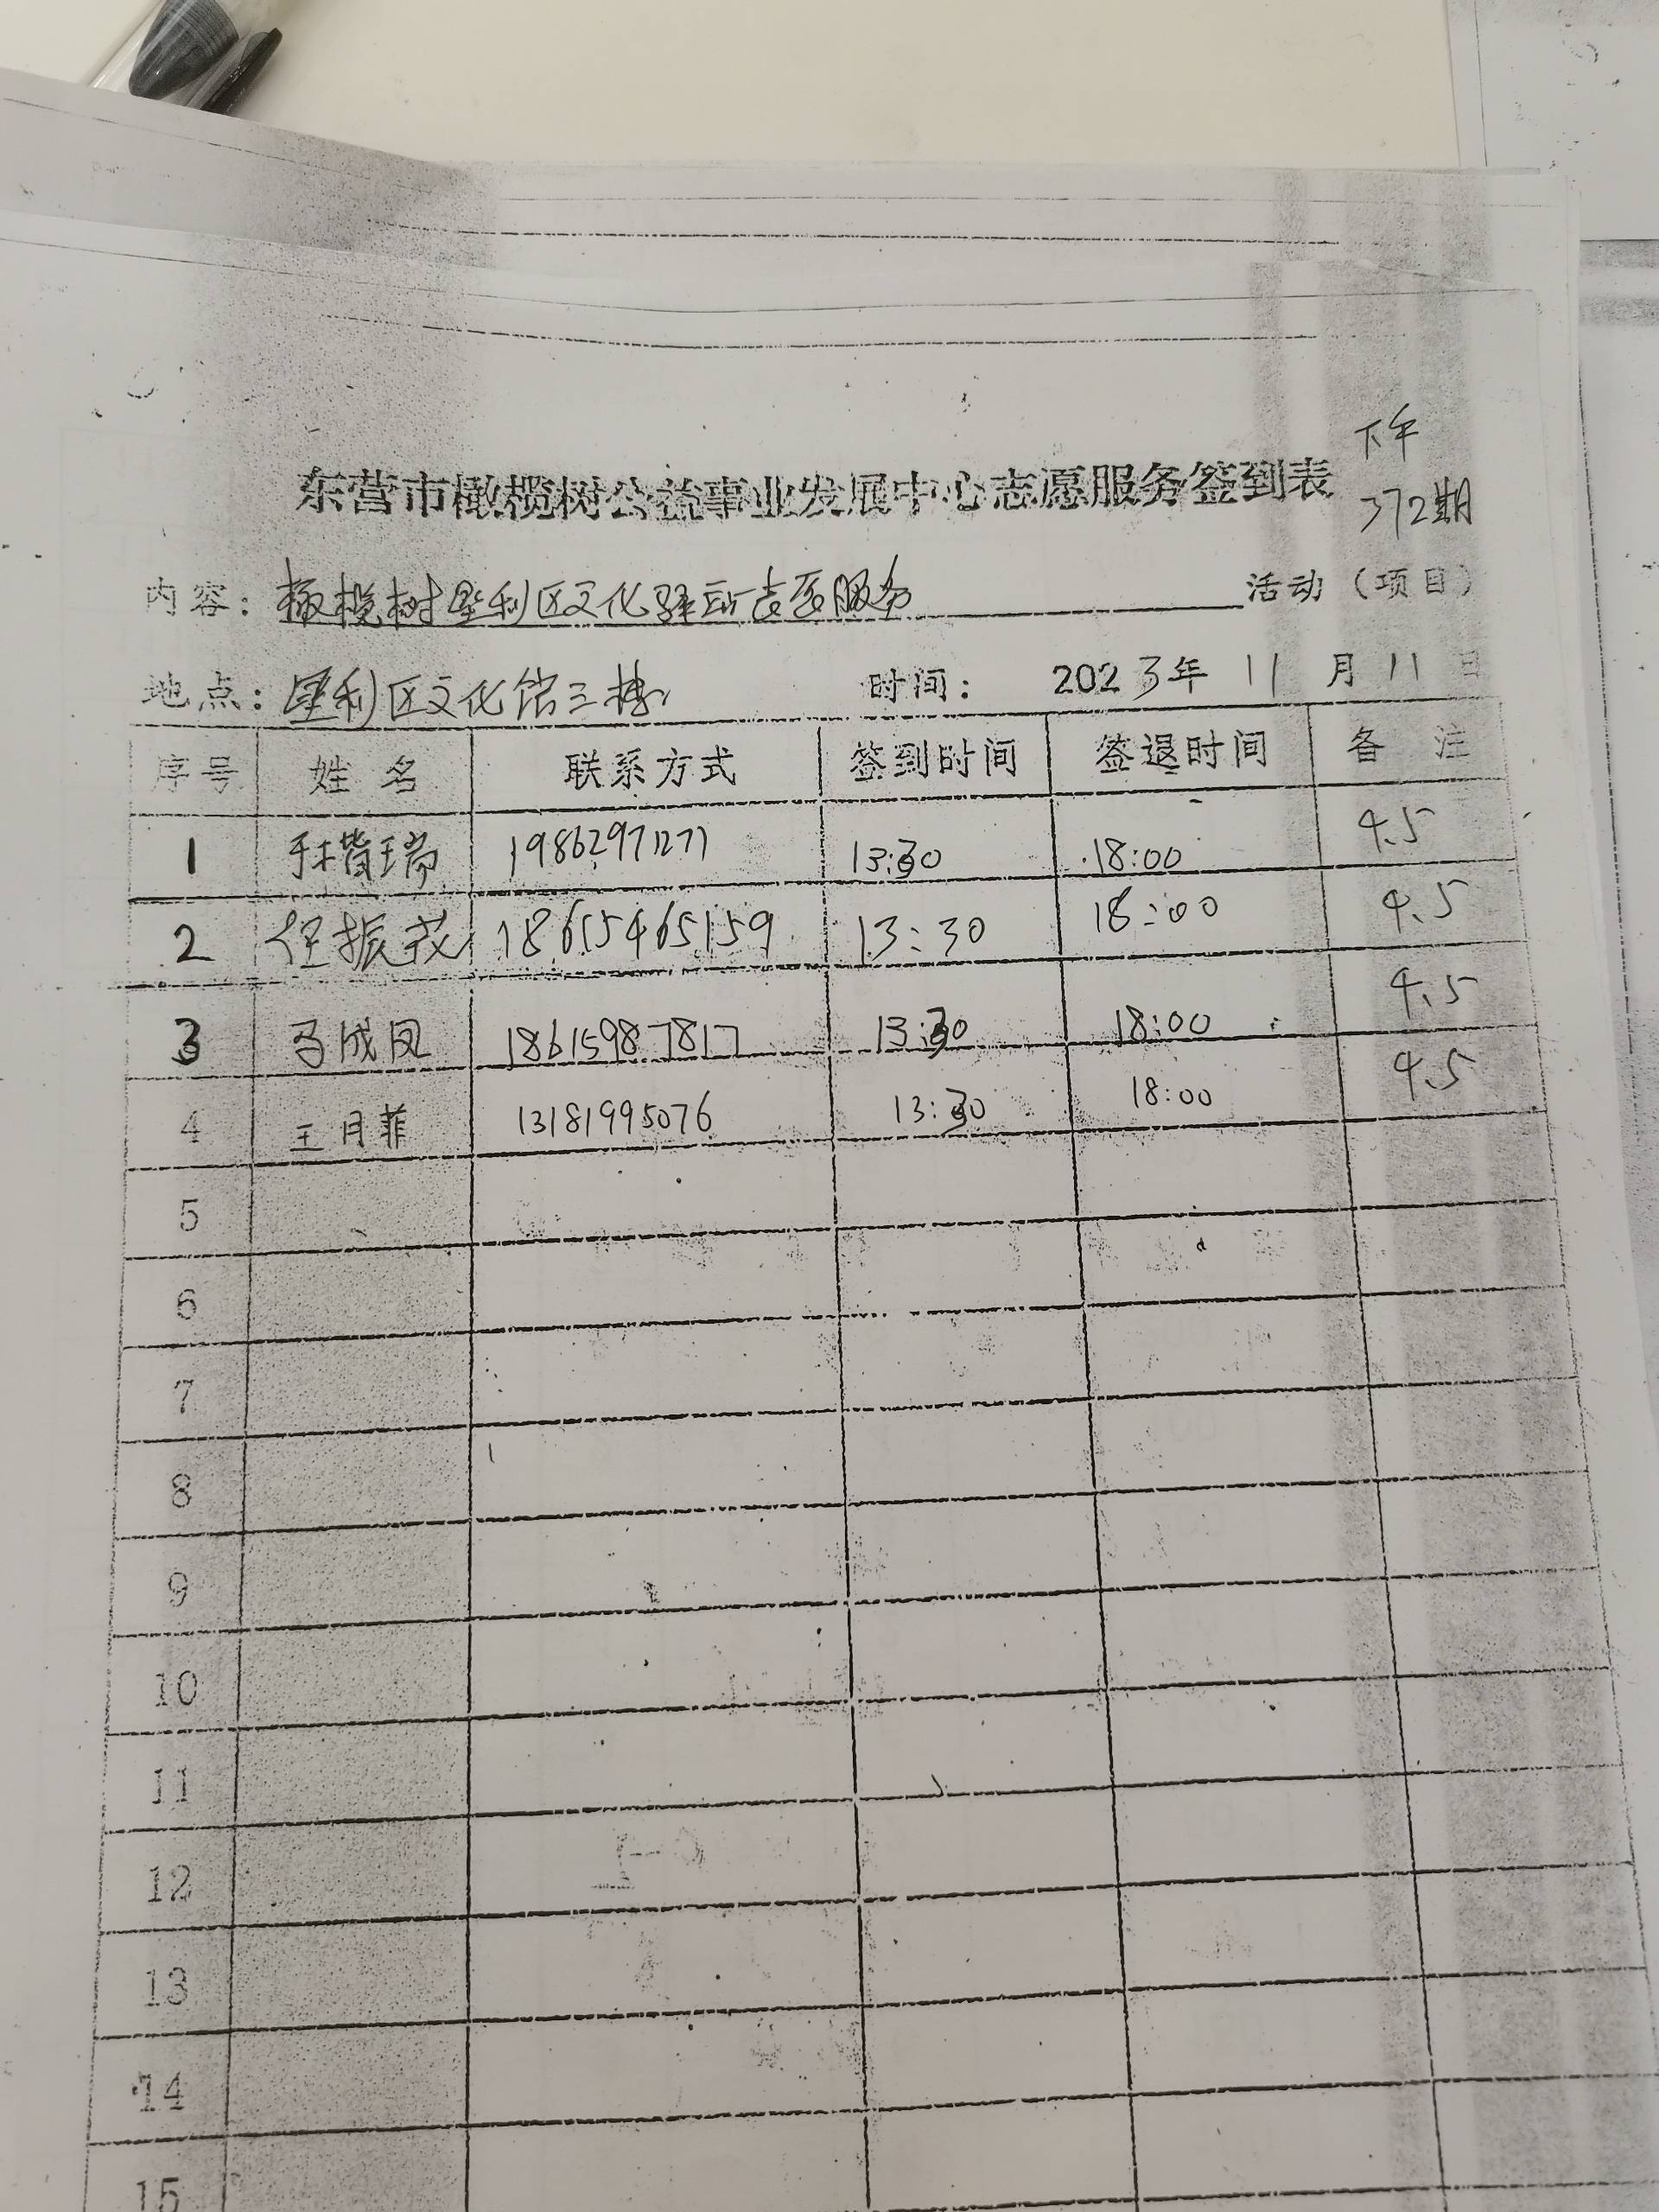 下午
东营市橄榄树公益事业发展中心志愿服务签到表
372期
内容：橄榄树垦利区文化驿站志愿服务 活动（项目）
地点：垦利区文化馆三楼 时间： 2023年 11 月 11 日
序号 姓 名 联系方式 签到时间 签退时间 备 注
1 19862971271 13:30 18:00 4.5
2 任振茂 18615465159 13:30 18:00 4.5
3 马成凤 18615987817 13:30 18:00 4.5
4 王月菲 13181995076 13:30 18:00 4.5
5
6
7
8
9
10
11
12
13
14
15